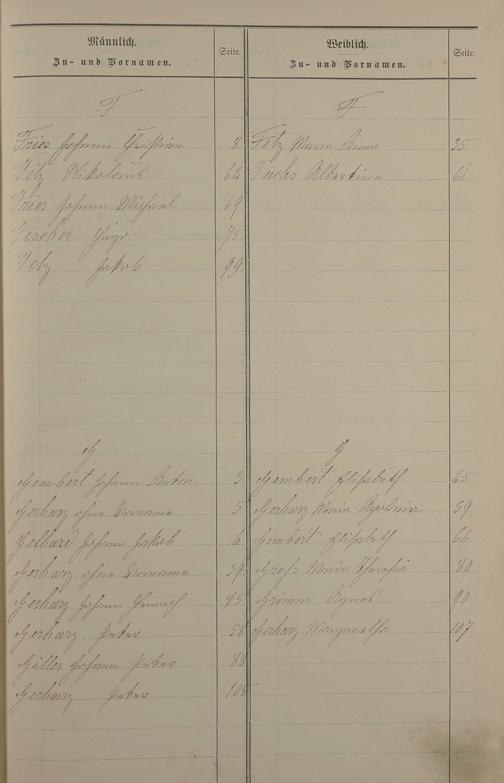 Männlich.
Zu- und Vornamen.
Seite.
F
Fries Johann Christian 8
Fetz Nikolaus 62
Fries Johann Michael 69
Fischer Hugo 75
Fetz Jakob 99
G
Gombert Johann Anton 3
Gerharz ohne Vorname 5
Gelhard Johann Jakob 6
Gerharz ohne Vorname 39
Gerharz Johann Heinrich 45
Gerharz Peter 56
Gilles Johann Peter 88
Gerharz Peter 105
Weiblich.
Zu- und Vornamen.
Seite.
F
Fetz Maria Anna 35
Fuchs Albertine 61
G
Gombert Elisabeth 25
Gerharz Maria Apolonia 59
Gombert Elisabeth 66
Groß Maria Theresia 80
Grimm Agnes 90
Gerharz Margaretha 107